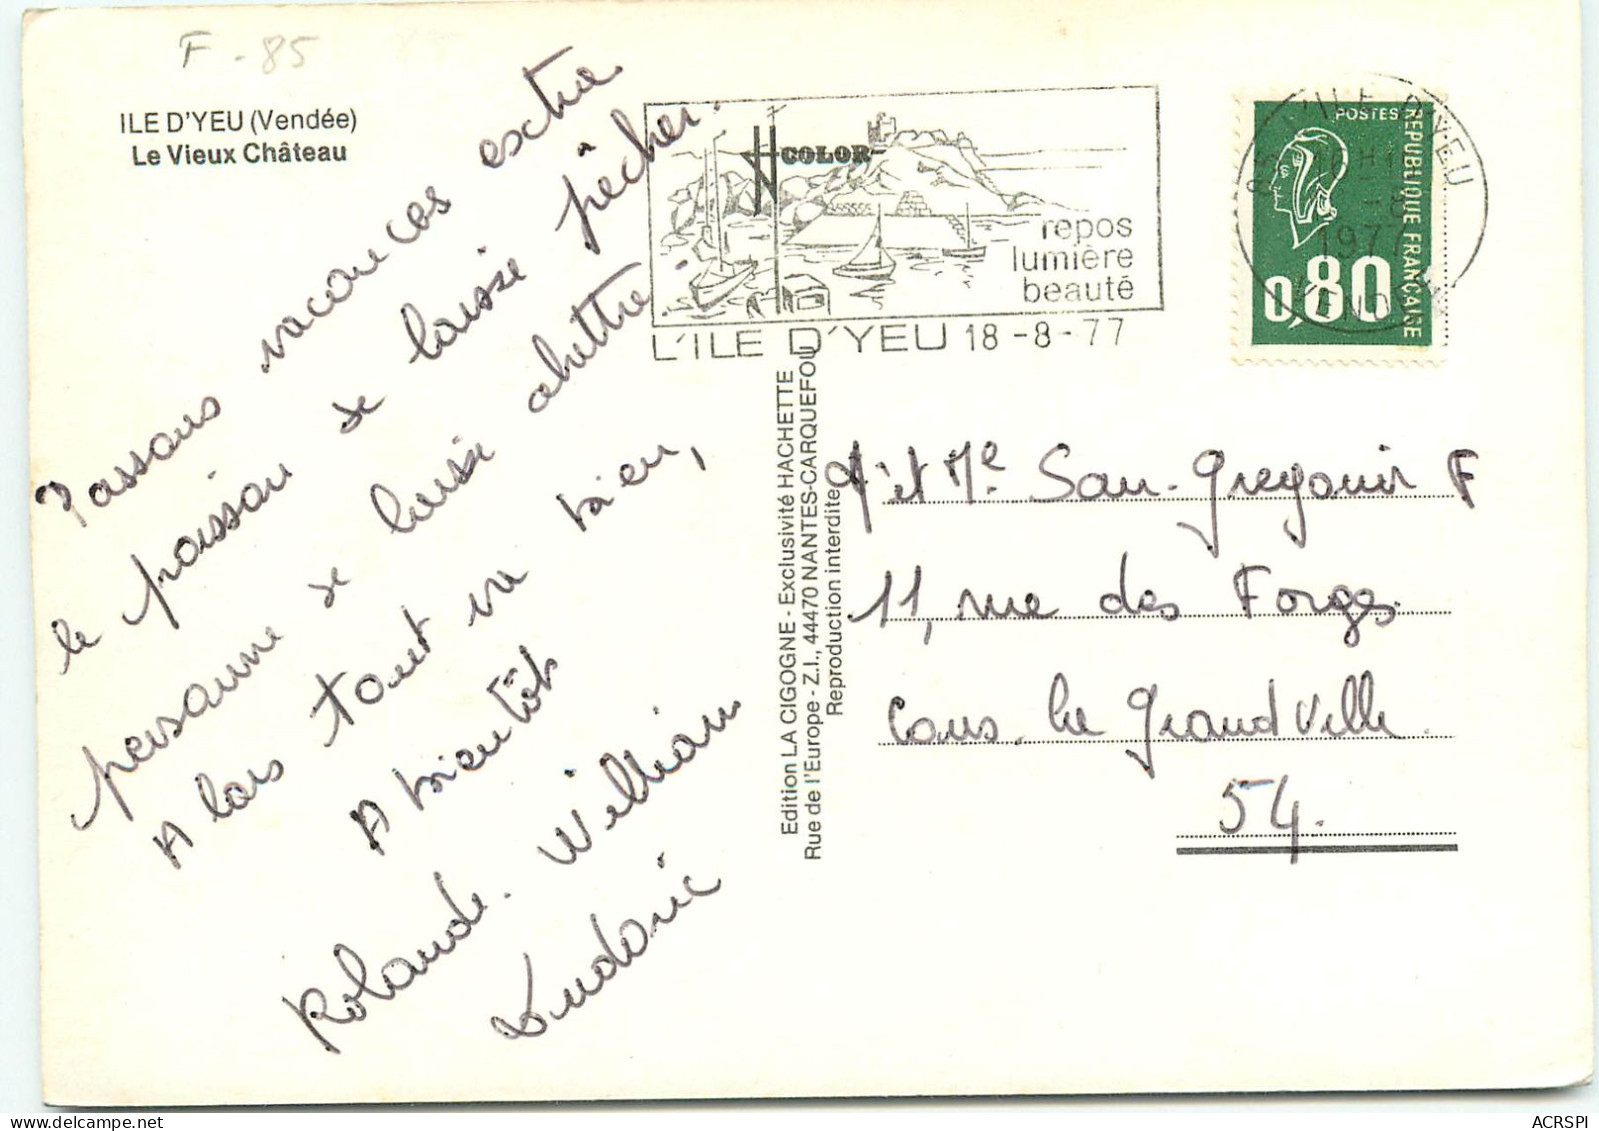 F-85
ILE D'YEU (Vendée)
Le Vieux Château
Passons vacances extra
le poisson se laisse pêcher.
personne se laisse abattre.
Alors tout va bien,
A bientôt
Rolande. William
Ludovic
COLOR
repos
lumière
beauté
L'ILE D'YEU 18-8-77
ILE D'YEU
1977
POSTES
REPUBLIQUE FRANÇAISE
0,80
Edition LA CIGOGNE - Exclusivité HACHETTE
Rue de l'Europe - Z.I., 44470 NANTES-CARQUEFOU
Reproduction interdite
San-Gregorio F
11, rue des Forges
Cons. la Grandville.
54.
ACRSPI